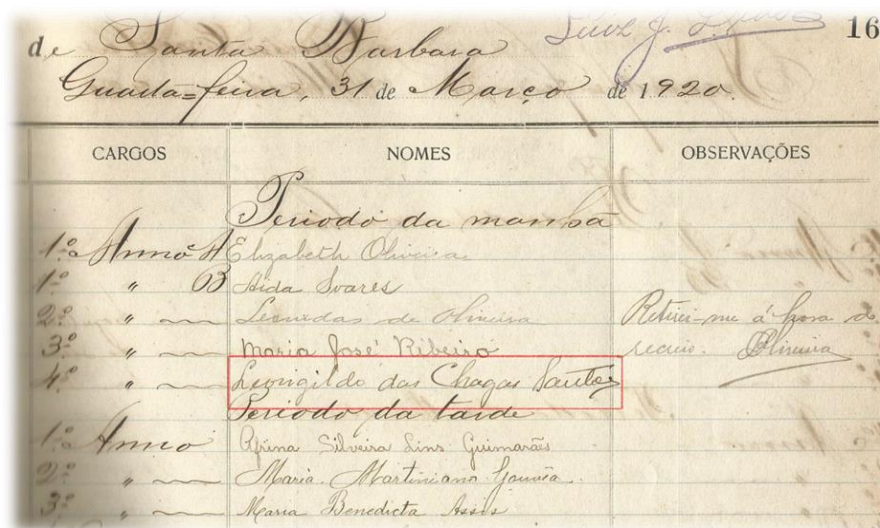 de Santa Barbara 16
Quarta=feira, 31 de Março de 1920.
CARGOS NOMES OBSERVAÇÕES
Periodo da manhã
1º Anno A Elizabeth Oliveira
1º " B Aida Soares
2º " Leonidas de Oliveira Retirei-me á hora do
3º " Maria José Ribeiro recreio. Oliveira
4º " Leovigildo das Chagas Santos
Periodo da tarde
1º Anno Silveira Lins Guimarães
2º " Maria Martiniano Gouvêa
3º " Maria Benedicta Assis